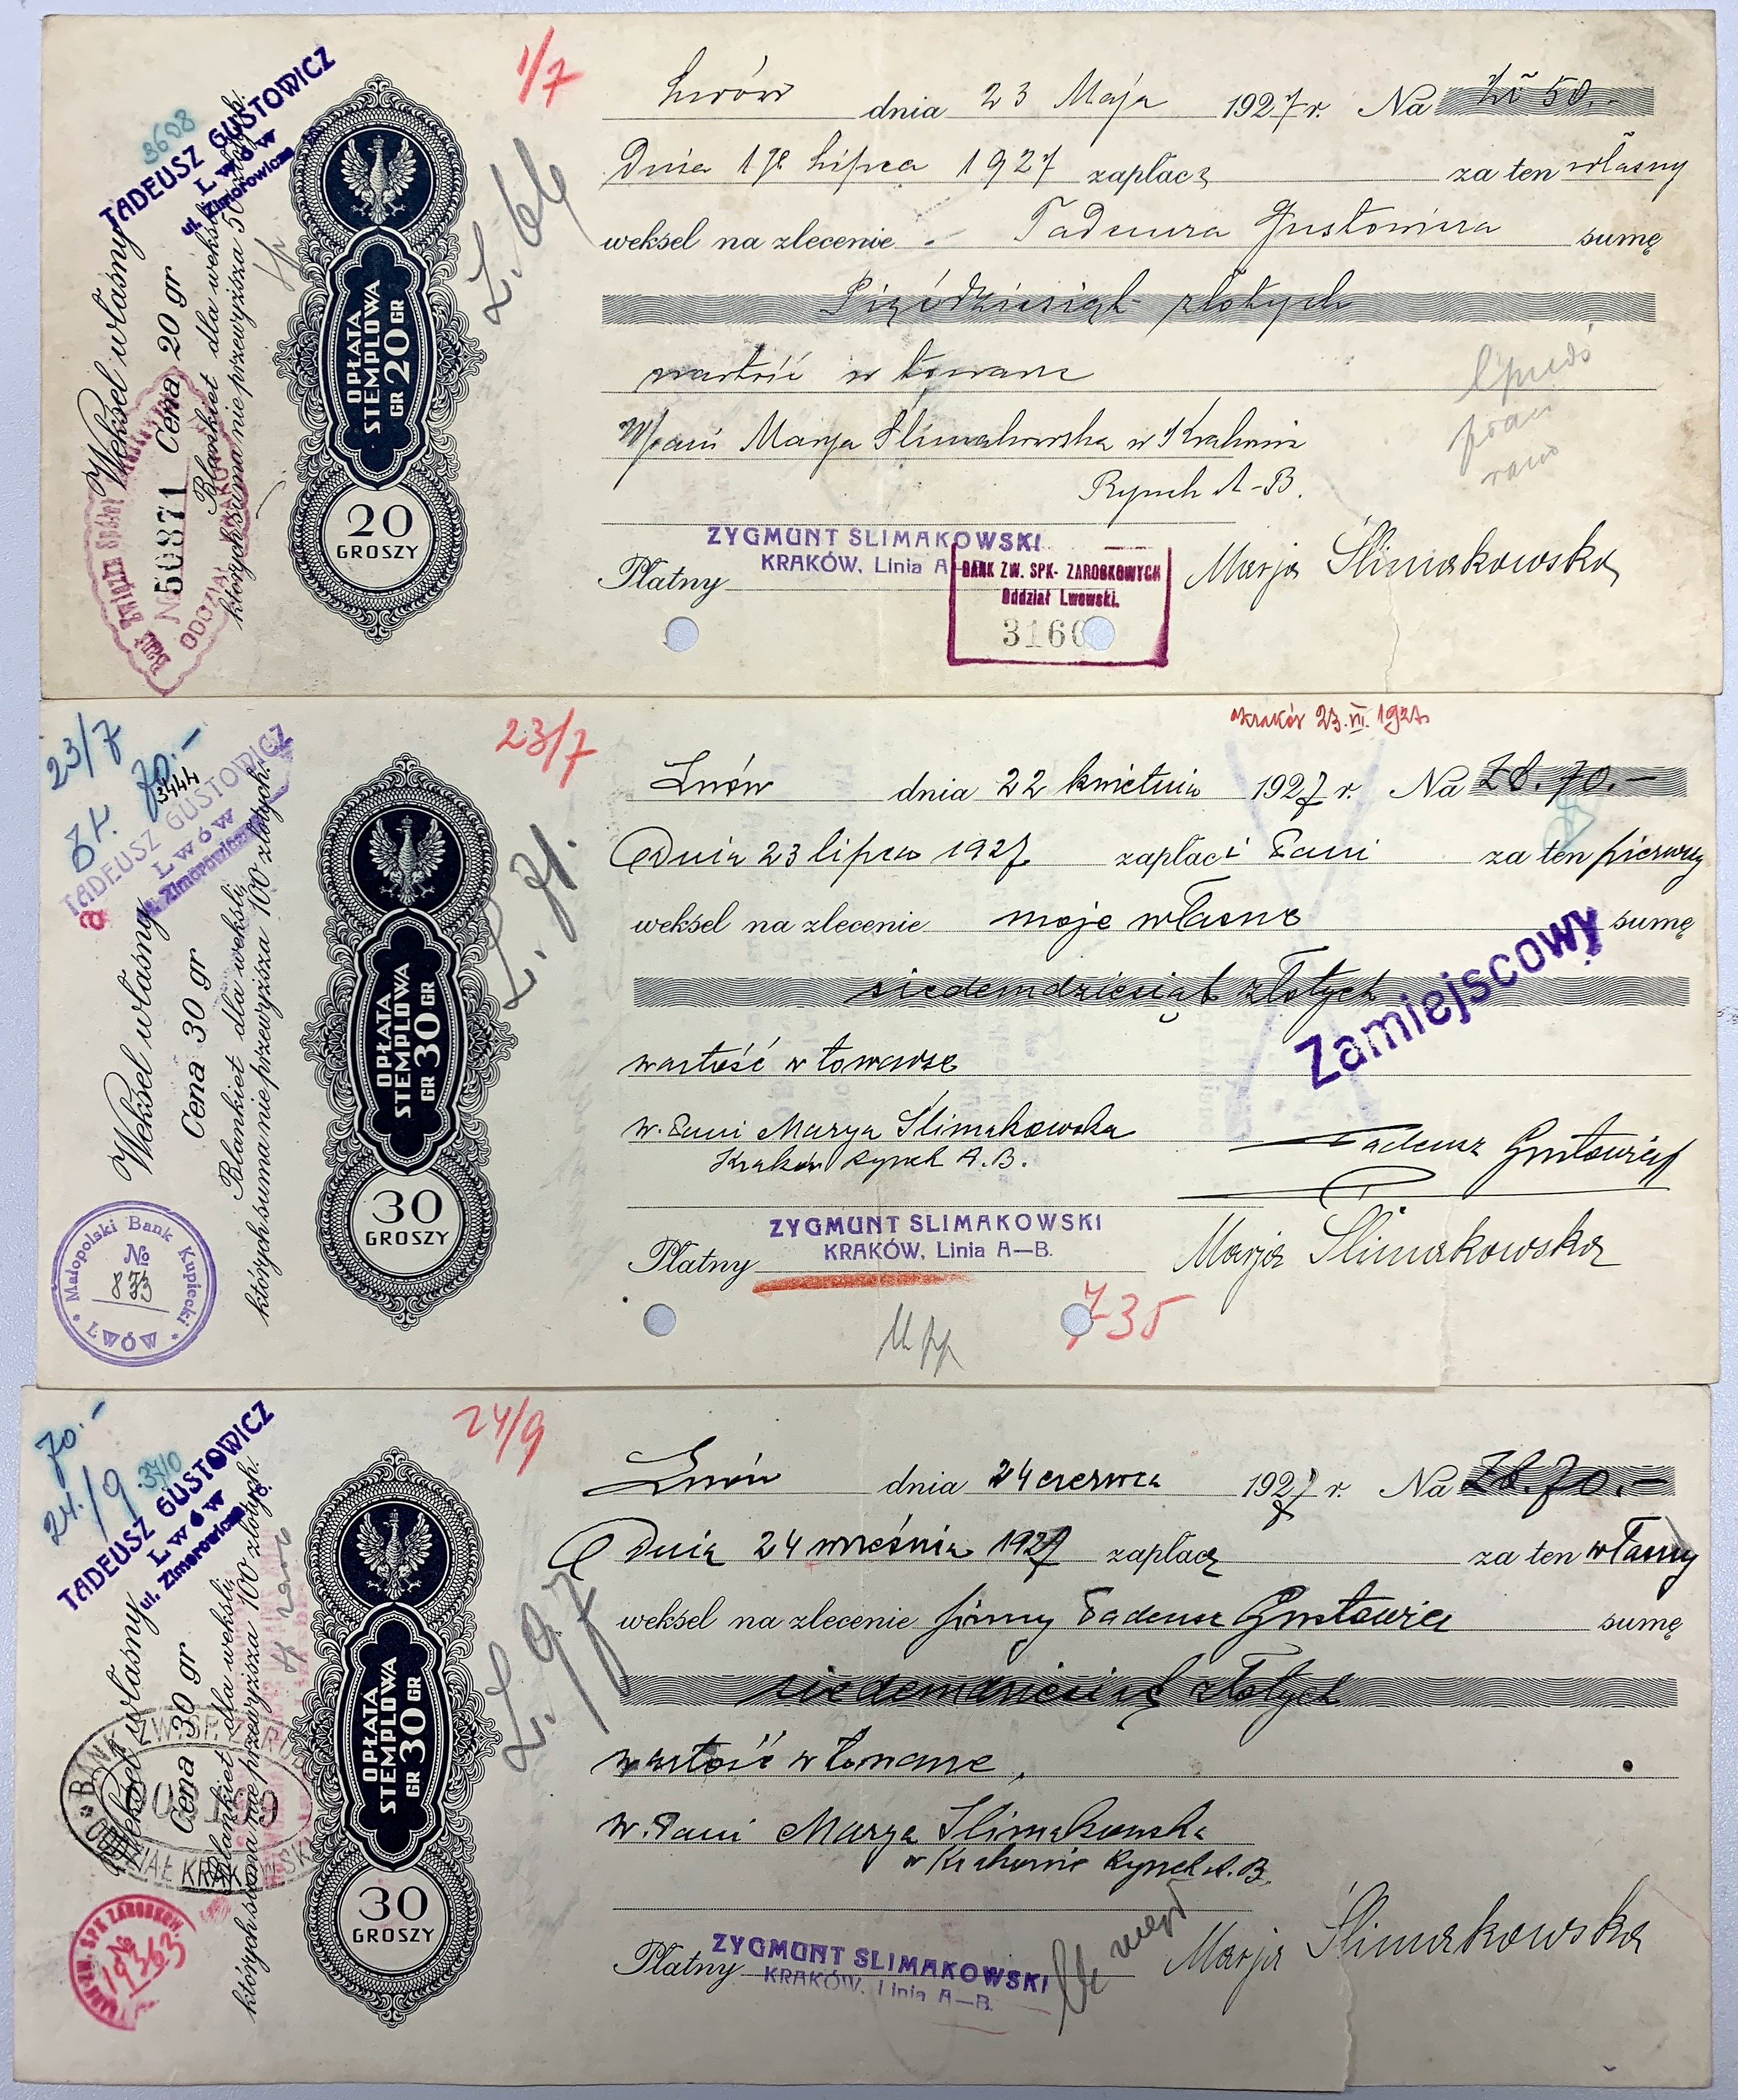 1/7
3608
TADEUSZ GUSTOWICZ
Lwów
ul. Zimorowicza
Weksel własny
Cena 20 gr
Blankiet dla weksli,
których suma nie przewyższa 50 złotych.
№ 50871
OPŁATA
STEMPLOWA
GR 20 GR
20
GROSZY
L. 64
Lwów dnia 23 Maja 1927 r. Na Zł 50.-
Dnia 1go Lipca 1927 zapłacę za ten własny
weksel na zlecenie Tadeusza Gustowicza sumę
Pięćdziesiąt złotych
wartość w towarze
W/pani Marja Ślimakowska w Krakowie
Rynek A-B.
ZYGMUNT SLIMAKOWSKI
KRAKÓW, Linia A
Płatny
BANK ZW. SPK- ZAROBKOWYCH
Oddział Lwowski.
3160
Marja Ślimakowska
23/7
70.-
3444
TADEUSZ GUSTOWICZ
Lwów
ul. Zimorowicza
a
Weksel własny
Cena 30 gr
Blankiet dla weksli,
których suma nie przewyższa 100 złotych.
Małopolski Bank Kupiecki
LWÓW
№
873
OPŁATA
STEMPLOWA
GR 30 GR
30
GROSZY
23/7
L. 71.
Kraków 23.VI.1927.
Lwów dnia 22 kwietnia 1927 r. Na Zł. 70.-
Dnia 23 lipca 1927 zapłaci Pani za ten pierwszy
weksel na zlecenie moje własne sumę
siedemdziesiąt złotych
Zamiejscowy
wartość w towarze
W. Pani Marya Ślimakowska
Kraków Rynek A.B.
Tadeusz Gustowicz
ZYGMUNT SLIMAKOWSKI
KRAKÓW, Linia A—B.
Płatny
Marja Ślimakowska
735
70.-
24/9
3710
TADEUSZ GUSTOWICZ
Lwów
ul. Zimorowicza
Weksel własny
Cena 30 gr
Blankiet dla weksli,
których suma nie przewyższa 100 złotych.
19363
OPŁATA
STEMPLOWA
GR 30 GR
30
GROSZY
24/9
L. 97
Lwów dnia 24 czerwca 1927 r. Na Zł. 70.-
Dnia 24 września 1927 zapłacę za ten własny
weksel na zlecenie firmy Tadeusz Gustowicz sumę
siedemdziesiąt złotych
wartość w towarze,
W. Pani Marya Ślimakowska
w Krakowie Rynek A.B.
ZYGMUNT SLIMAKOWSKI
KRAKÓW, Linia A—B.
Płatny
Marja Ślimakowska